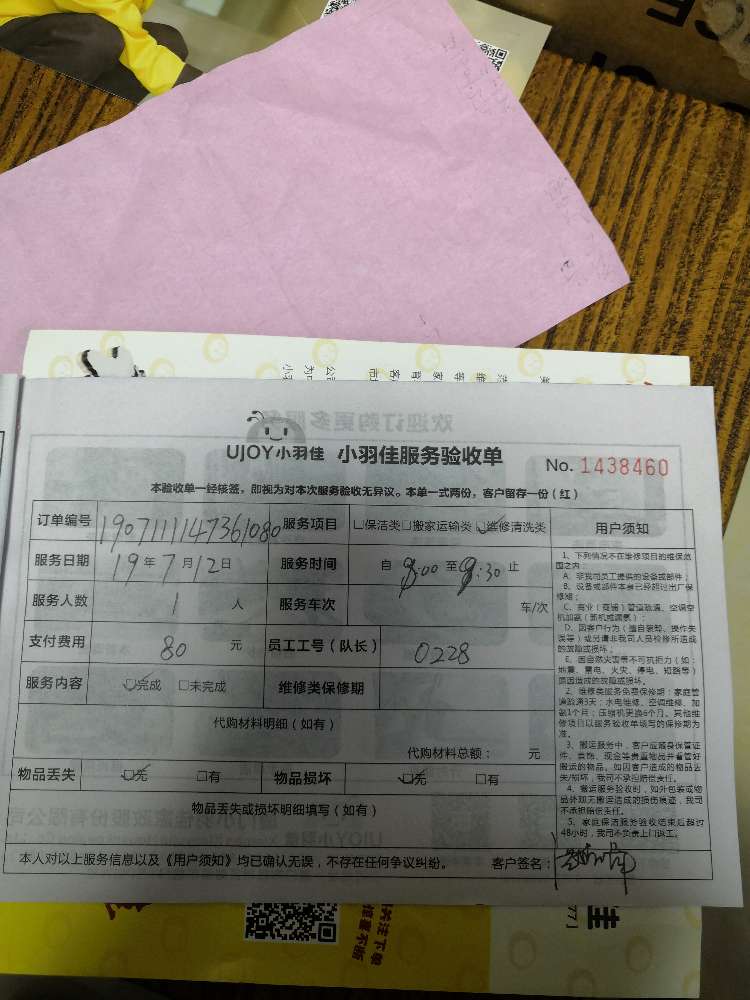 UJOY小羽佳 小羽佳服务验收单 No. 1438460
本验收单一经核签，即视为对本次服务验收无异议。本单一式两份，客户留存一份（红）
订单编号 1907111147361080 服务项目 □保洁类□搬家运输类☑维修清洗类 用户须知
服务日期 19年7月12日 服务时间 自 8:00 至 9:30 止
服务人数 1 人 服务车次 车/次
支付费用 80 元 员工工号（队长） 0228
服务内容 ☑完成 □未完成 维修类保修期
代购材料明细（如有）
代购材料总额： 元
物品丢失 ☑无 □有 物品损坏 ☑无 □有
物品丢失或损坏明细填写（如有）
本人对以上服务信息以及《用户须知》均已确认无误，不存在任何争议纠纷。 客户签名：
1、下列情况不在维修项目的维保范
围之内：
A、非我司员工提供的设备或部件；
B、设备或部件本身已经超过出厂保
修期；
C、商业（商铺）管道疏通、空调空
机加氟（新机或漏氟）；
D、因客户行为（擅自装卸、操作失
误等）或另请非我司人员检修所造成
的故障或损坏；
E、因自然灾害等不可抗拒力（如：
地震、雷电、火灾、停电、短路等）
原因造成的故障或损坏。
2、维修类服务免费保修期：家庭管
道疏通3天；水电维修、空调维修、加
氟1个月；压缩机更换6个月。其他维
修项目以服务验收单填写的保修期为
准。
3、搬运服务中，客户应随身保管证
件、首饰、现金等贵重物品并看管好
搬运的物品。如因客户造成的物品丢
失/损坏，我司不承担赔偿责任。
4、搬运服务验收时，如外包装或物
品外观无搬运造成的损伤痕迹，我司
不承担赔偿责任。
5、家庭保洁服务验收结束后超过
48小时，我司不负责上门返工。